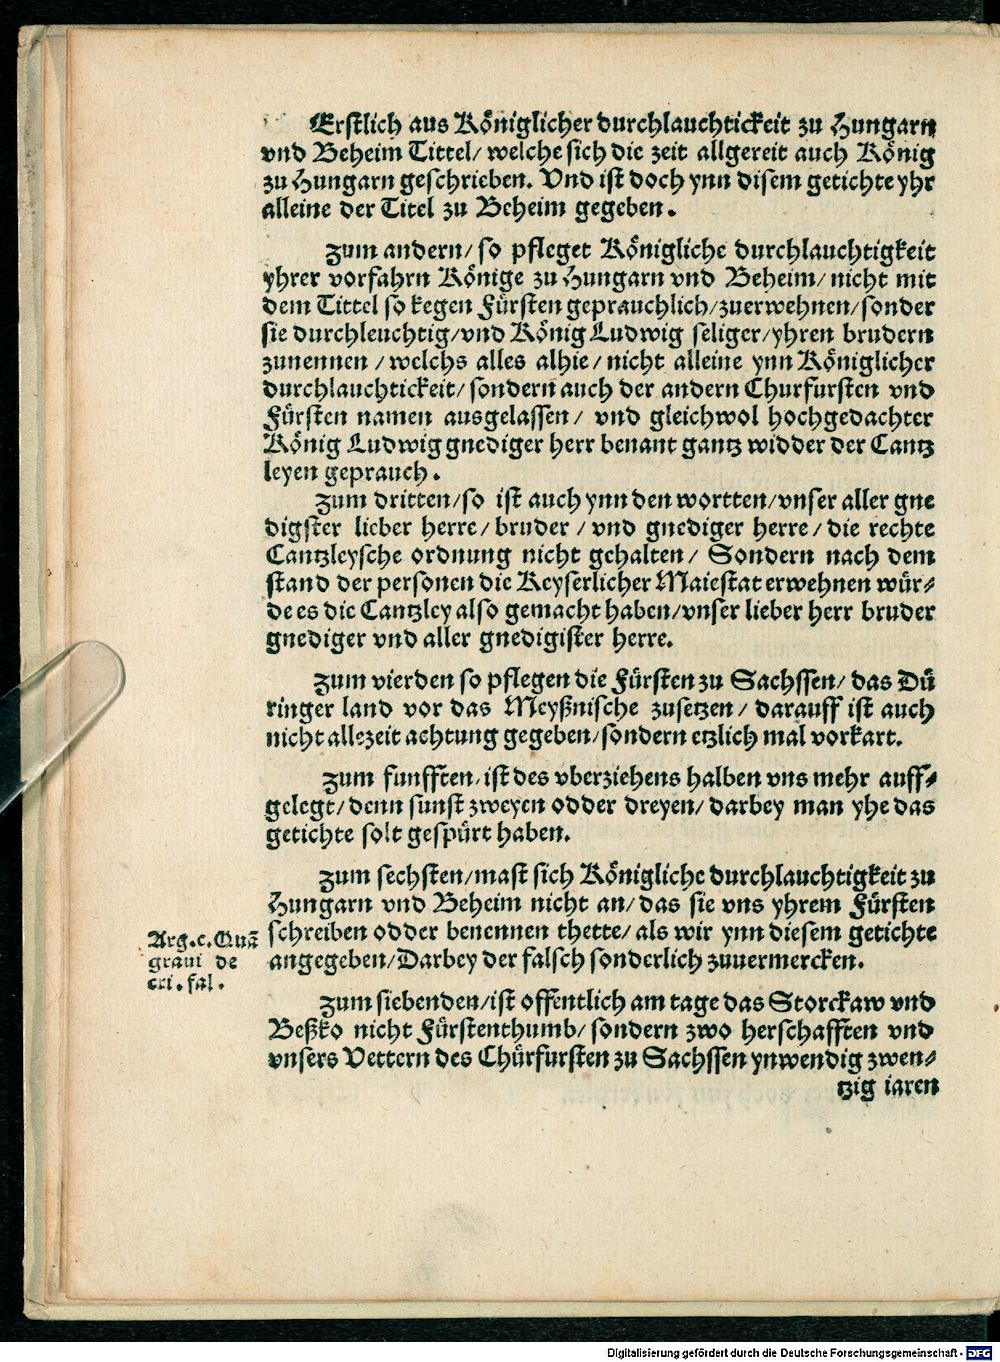 Erstlich aus Königlicher durchlauchtickeit zu Hungarn
vnd Beheim Tittel/ welche sich die zeit allgereit auch König
zu Hungarn geschrieben. Vnd ist doch ynn disem getichte yhr
alleine der Titel zu Beheim gegeben.
Zum andern/ so pfleget Königliche durchlauchtigkeit
yhrer vorfahrn Könige zu Hungarn vnd Beheim/ nicht mit
dem Tittel so kegen Fürsten geprauchlich/ zuerwehnen/ sonder
sie durchleuchtig/ vnd König Ludwig seliger/ yhren brudern
zunennen / welchs alles alhie/ nicht alleine ynn Königlicher
durchlauchtickeit/ sondern auch der andern Churfursten vnd
Fürsten namen ausgelassen/ vnd gleichwol hochgedachter
König Ludwig gnediger herr benant gantz widder der Cantz
leyen geprauch.
Zum dritten/ so ist auch ynn den wortten/ vnser aller gne
digster lieber herre/ bruder / vnd gnediger herre/ die rechte
Cantzleysche ordnung nicht gehalten/ Sondern nach dem
stand der personen die Keyserlicher Maiestat erwehnen wür⸗
de es die Cantzley also gemacht haben/ vnser lieber herr bruder
gnediger vnd aller gnedigister herre.
Zum vierden so pflegen die Fürsten zu Sachssen/ das Dü
ringer land vor das Meyßnische zusetzen/ darauff ist auch
nicht allezeit achtung gegeben/ sondern etzlich mal vorkart.
Zum funfften/ ist des vberziehens halben vns mehr auff⸗
gelegt/ denn sunst zweyen odder dreyen/ darbey man yhe das
getichte solt gespürt haben.
Zum sechsten/ mast sich Königliche durchlauchtigkeit zu
Hungarn vnd Beheim nicht an/ das sie vns yhrem Fürsten
schreiben odder benennen thette/ als wir ynn diesem getichte
angegeben/ Darbey der falsch sonderlich zuuermercken.
Arg.c.Quã
graui de
cri.fal.
Zum siebenden/ ist offentlich am tage das Storckaw vnd
Beßko nicht Fürstenthumb/ sondern zwo herschafften vnd
vnsers Vettern des Chürfursten zu Sachssen ynwendig zwen⸗
tzig iaren
Digitalisierung gefördert durch die Deutsche Forschungsgemeinschaft - DFG